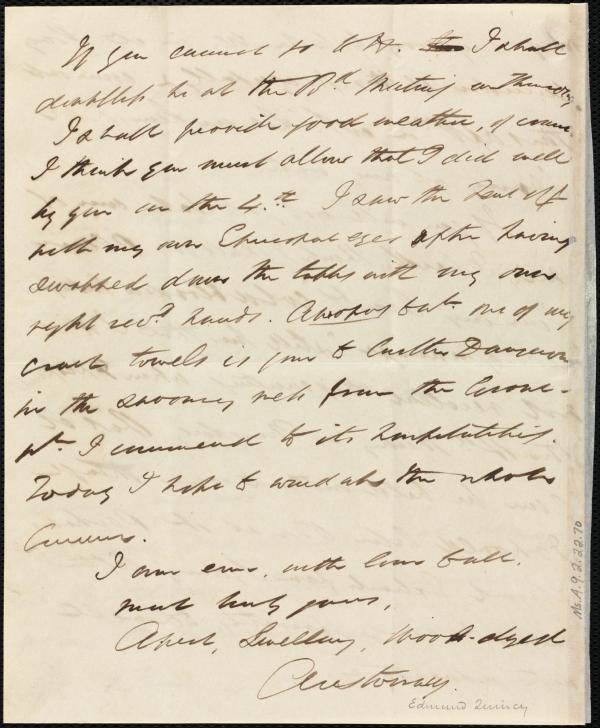 If you cannot so to H. I shall
doubtless be at the B^d. Meeting on Thursday
I shall provide good weather, of course
I think you must allow that I did well
by you on the 4.th I saw the Tent off
with my own Episcopal eyes after having
swabbed down the tables with my own
right rev^d. hands. Apropos but one of my
crash towels is gone to
in the savoury from the Grove.
wh. I commend to its hospitalities.
Today I hope to wind up the whole
Concern.
I am ever, with love to all,
most truly yours,
, Swelling, Wood-dyed
Aristocracy.
Edmund Quincy
Ms.A.9.2.22.70